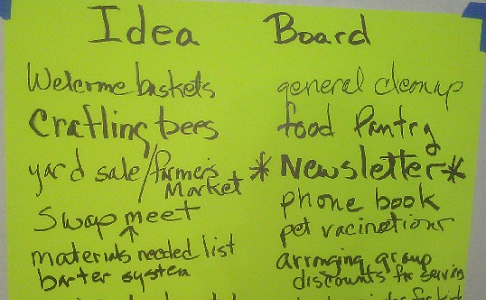 Idea Board
Welcome baskets
Crafting bees
yard sale/Farmer's Market
Swap meet
↑
materials needed list
barter system
general cleanup
food Pantry
*Newsletter*
phone book
pet vacinations
arranging group
discounts for service